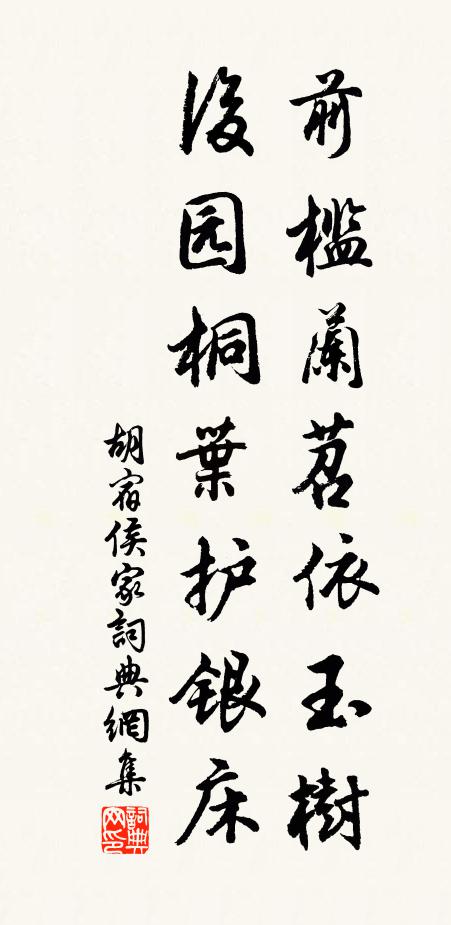 前檻蘭苕依玉樹
後园桐葉护銀床
胡宿侯家詞典網集
詞典网印